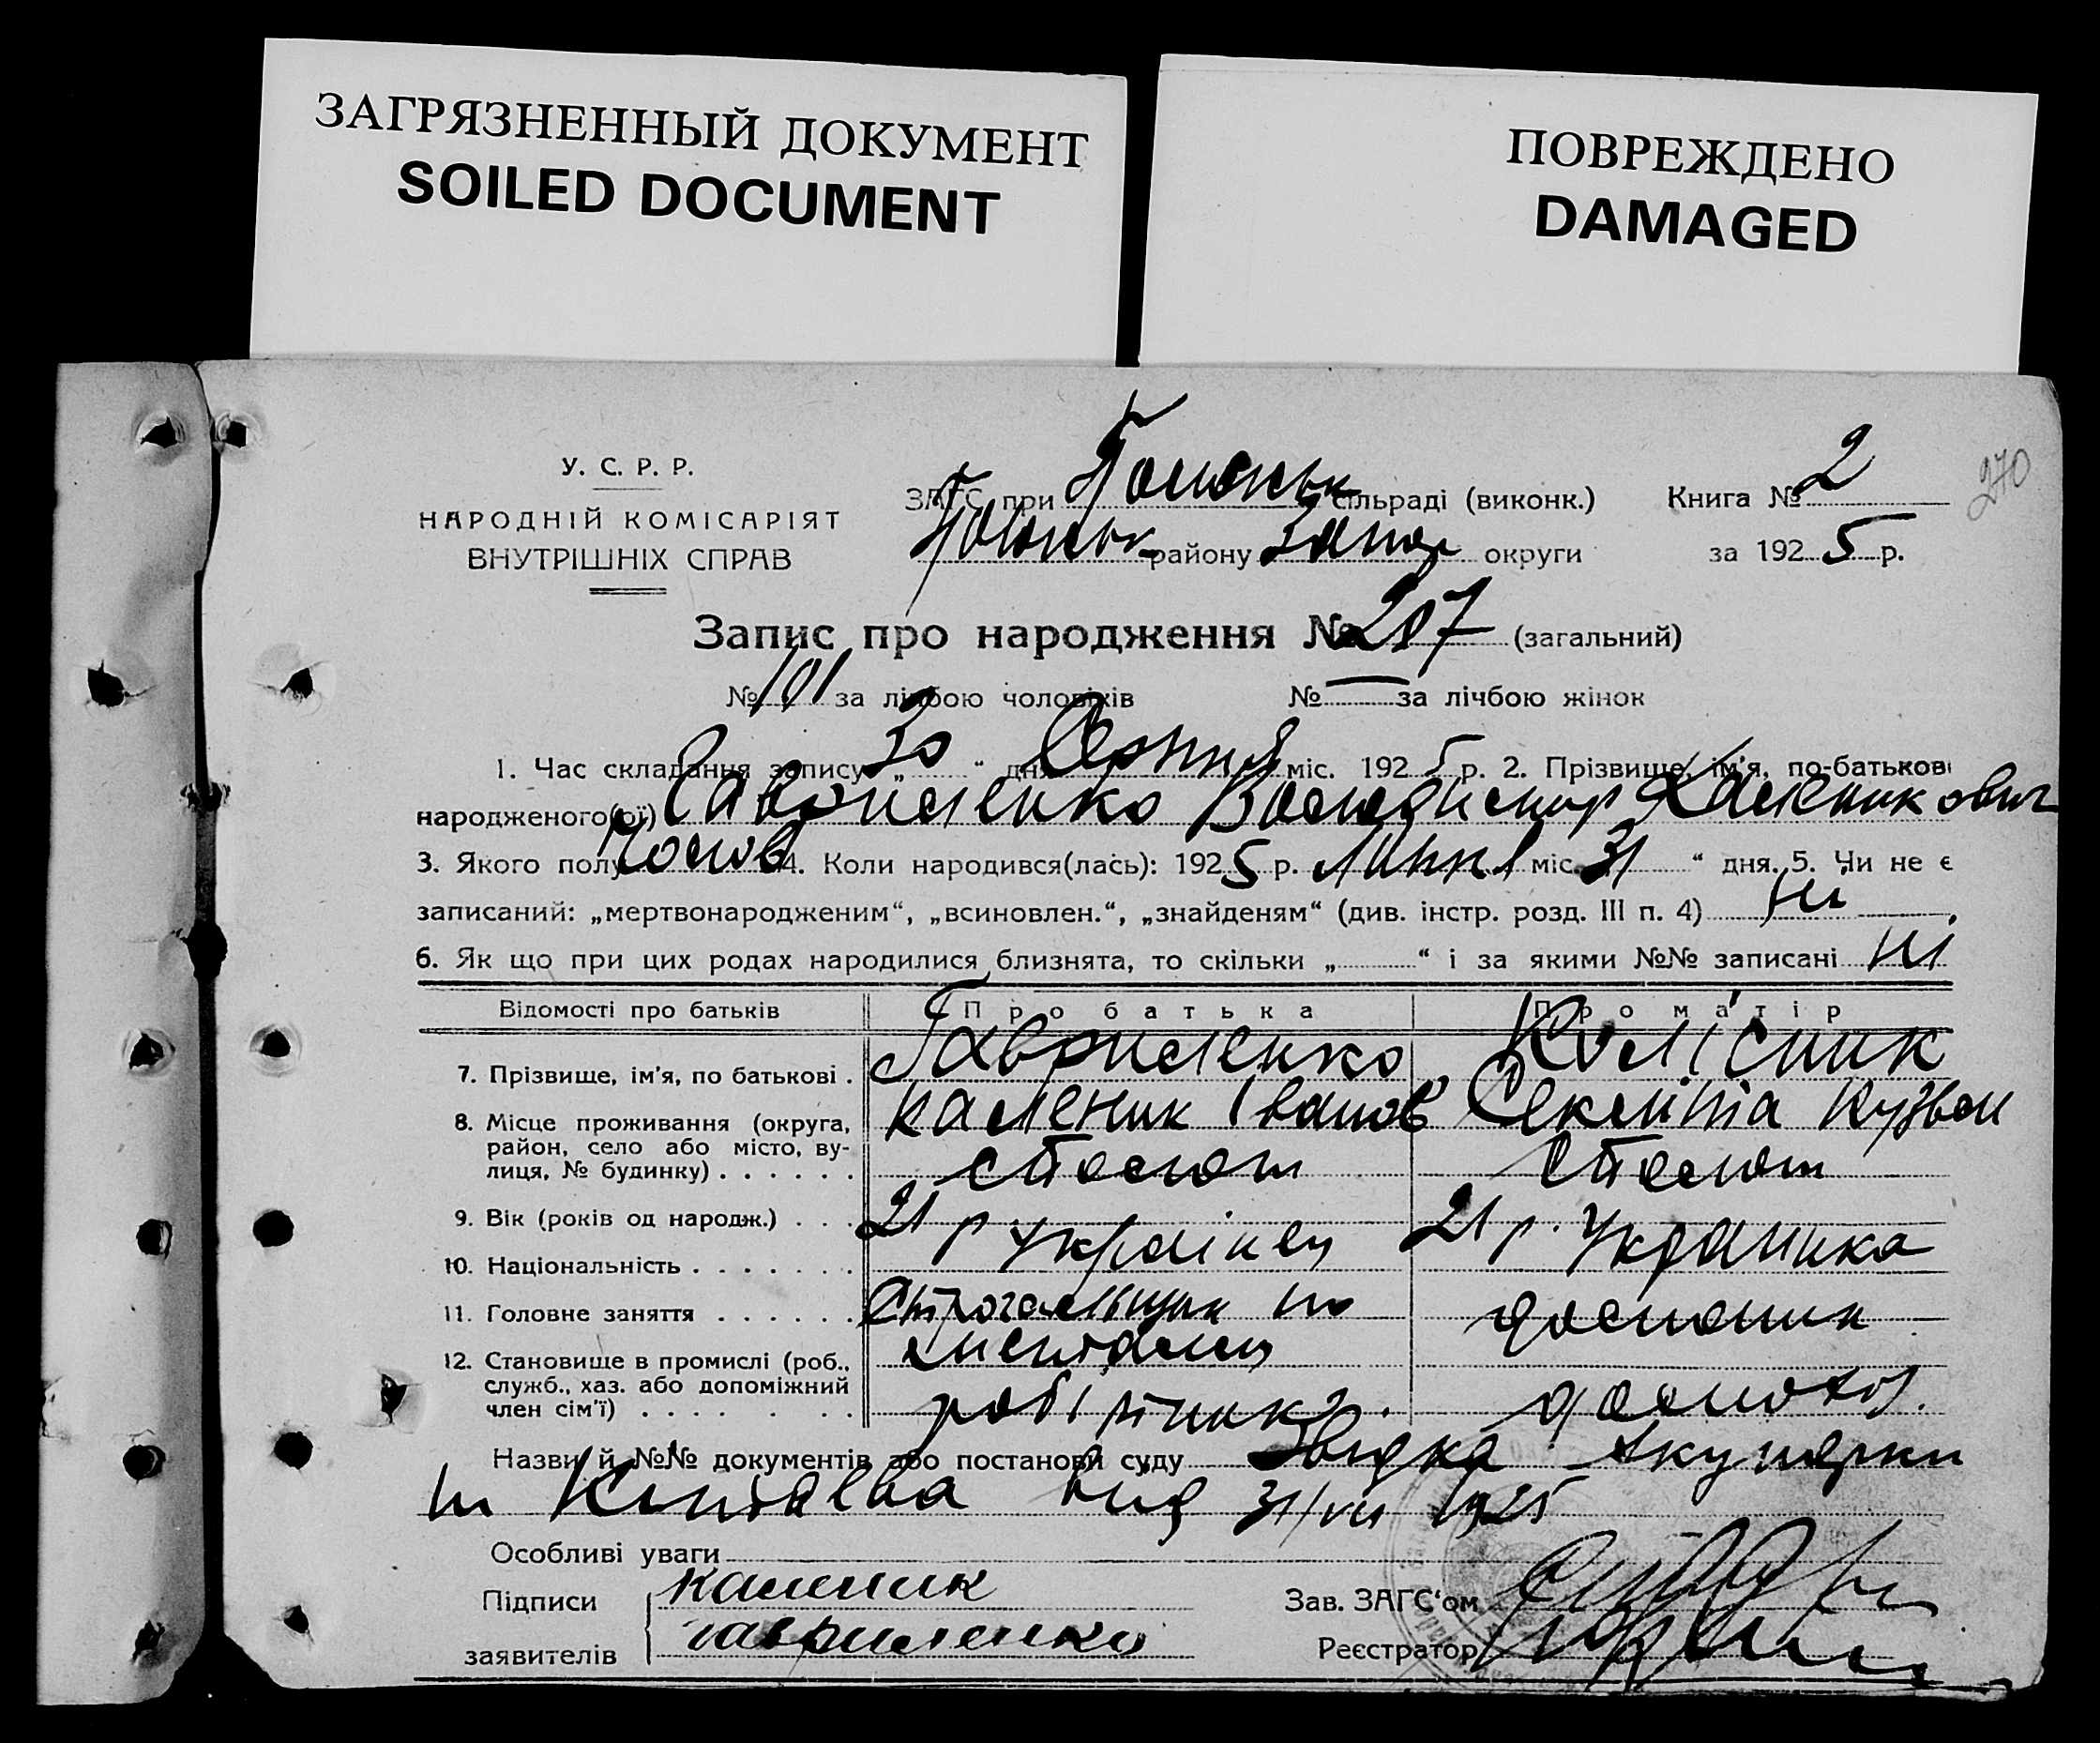 ЗАГРЯЗНЕННЫЙ ДОКУМЕНТ
SOILED DOCUMENT
ПОВРЕЖДЕНО
DAMAGED
270
У. С. Р. Р.
НАРОДНІЙ КОМІСАРІЯТ
ВНУТРІШНІХ СПРАВ
ЗАГС при сільраді (виконк.) Книга № 2
району Запор округи за 1925 р.
Запис про народження № 207 (загальний)
№ 101 за лічбою чоловіків № — за лічбою жінок
1. Час складання запису „30“ дня Серпня міс. 1925 р. 2. Прізвище, ім'я, по-батькові
народженого(ої) Гавриленко Володимир Каленикович
3. Якого полу чолов 4. Коли народився(лась): 1925 р. Липня міс. 31 “ дня. 5. Чи не є
записаний: „мертвонародженим“, „всиновлен.“, „знайденям“ (див. інстр. розд. III п. 4) ні
6. Як що при цих родах народилися близнята, то скільки „ “ і за якими №№ записані ні
Відомості про батьків Про батька Про матір
7. Прізвище, ім'я, по батькові . Гавриленко Колісник
каленик Іванов Секліта Кузьм
8. Місце проживання (округа,
район, село або місто, ву-
лиця, № будинку) . . . . . .
9. Вік (років од народж.) . . . 21 р 21 р.
10. Національність . . . . . . . Українец Українка
11. Головне заняття . . . . . . Строгальщик по
металу
12. Становище в промислі (роб.,
служб., хаз. або допоміжний
член сім'ї) . . . . робітник
Назви й №№ документів або постанови суду Звідка Акушерки
від 31/VII 1925
Особливі уваги
Підписи каленик Зав. ЗАГС'ом
заявителів гавриленко Реєстратор